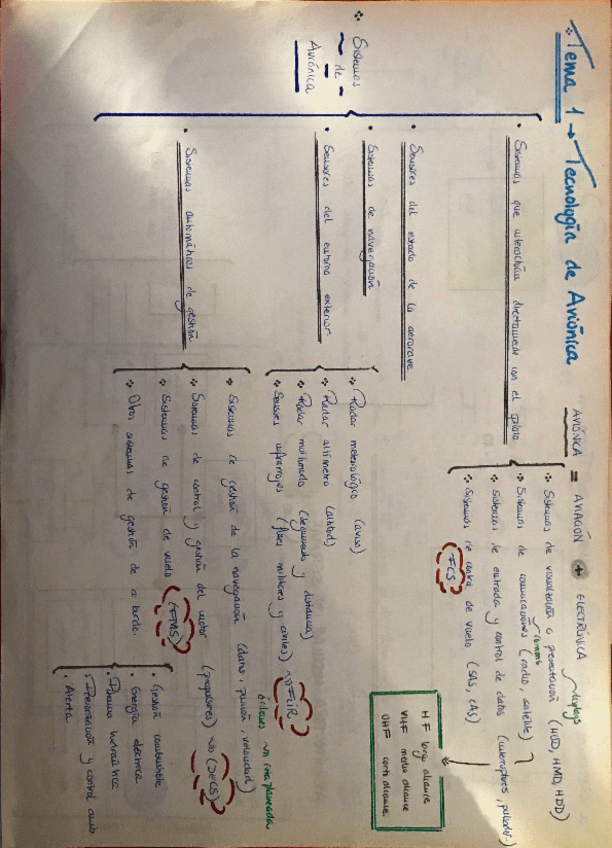 Tema 1 → Tecnología de Aviónica
AVIÓNICA = AVIACIÓN + ELECTRÓNICA
Sistemas de Aviónica
• Sistemas que interactúan directamente con el piloto
❖ Sistemas de visualización o presentación (HUD, HMD, HDD)
displays
❖ Sistemas de comunicaciones (radio, satélite)
❖ Sistemas de entrada y control de datos (interruptores, pulsador)
❖ Sistemas de control de vuelo (SAS, CAS)
FCS
HF largo alcance
VHF medio alcance
UHF corto alcance
• Sensores del estado de la aeronave
• Sistemas de navegación
• Sensores del entorno exterior
❖ Radar meteorológico (aviso)
❖ Radar altímetro (altitud)
❖ Radar multimodo (seguimiento y distancias)
❖ Sensores infrarrojos (fines militares y civiles) → FLIR
• Sistemas automáticos de gestión
❖ Sistemas de gestión de la navegación (datos, posición, velocidad)
órdenes → ruta planeada
❖ Sistemas de control y gestión del motor (propulsores) → (DECS)
❖ Sistemas de gestión de vuelo (FMS)
❖ Otros sistemas de gestión de a bordo.
• Gestión combustible
• Energía eléctrica
• Potencia hidráulica
• Presurización y control amb
• Alerta